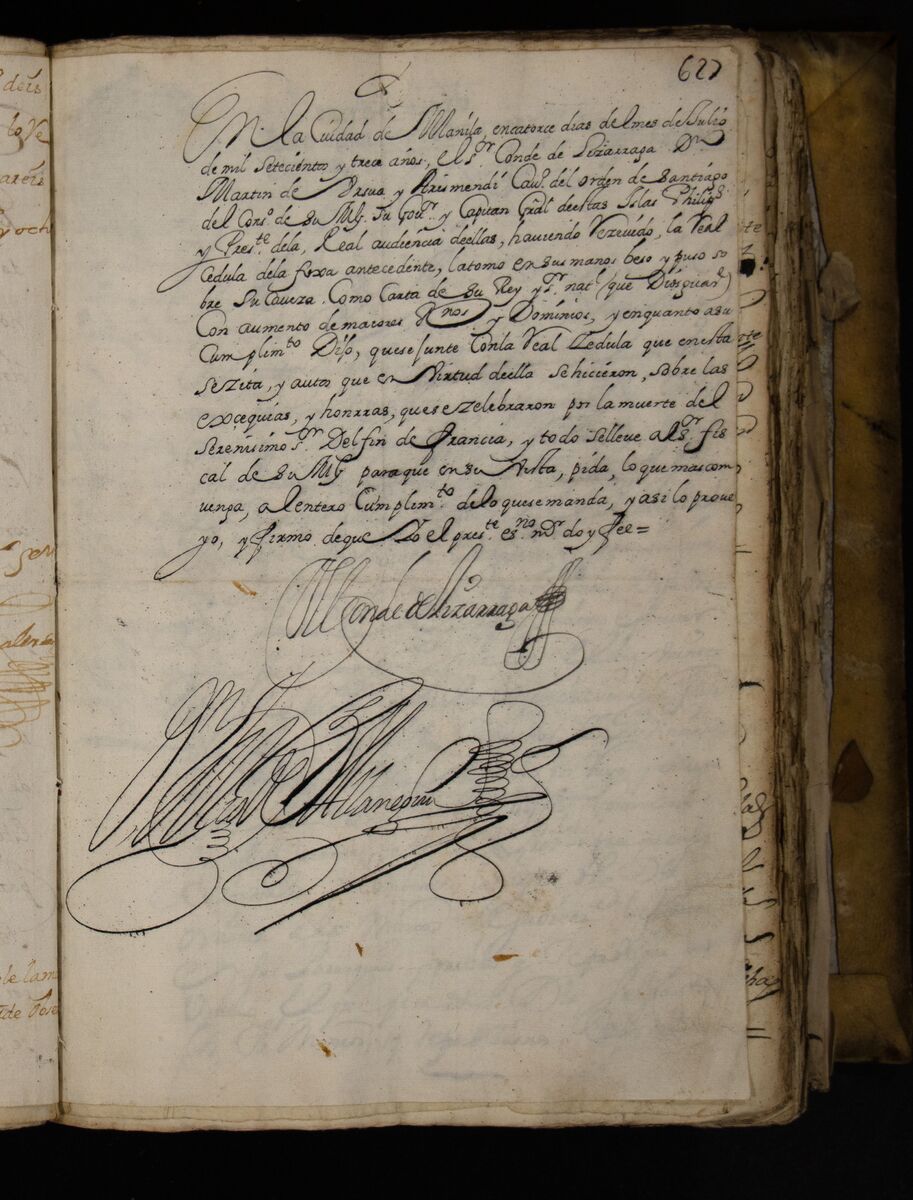 627
En la Ciudad de Manila, encatorce dias del mes de Jullio
de mil setecientos y trece años, el s.or Conde de Lizarraga Dn
Martin de Vrsua y Arismendi Cav.o del orden de Santiago
del Cons.o de su Mg. su Gov.or y Capitan Gral deestas Islas Philip.s
y Pres.te dela Real audiencia deellas, haviendo Rezevido, la Real
Cedula dela foxa antecedente, latomo ensus manos beso y puso so
bre Su Caveza. Como Carta de su Rey y s.or nat.l (que Dios guar.e)
Con aumento demaiores Rnos y Dominios, y enquanto asu
Cumplim.to Dijo, quesejunte Conla Real Zedula que enesta
sezita, y autos que en Virtud deella sehicieron, sobre las
excequias, y honrras, quese zelebraron por lamuerte del
Serenisimo s.or Delfin de Francia, y todo selleve al s.or fis
cal de su Mg paraque ensu Vista, pida, lo que mascom
venga, alentero Cumplim.to delo quesemanda, y asi lo prove
yo, y firmo deque Yo el pres.te es.no m.or doy fee=
El Conde de Lizarraga
de la m